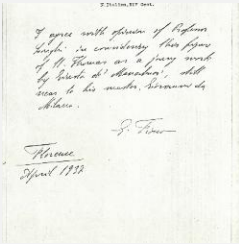 I agree with opinion of Professor
in considering this figure
of St. Thomas as a fine work
by Giusto de' Menabuoi, still
near to his master, Giovanni da
Milano.
G. Fiocco
Florence
April 1932